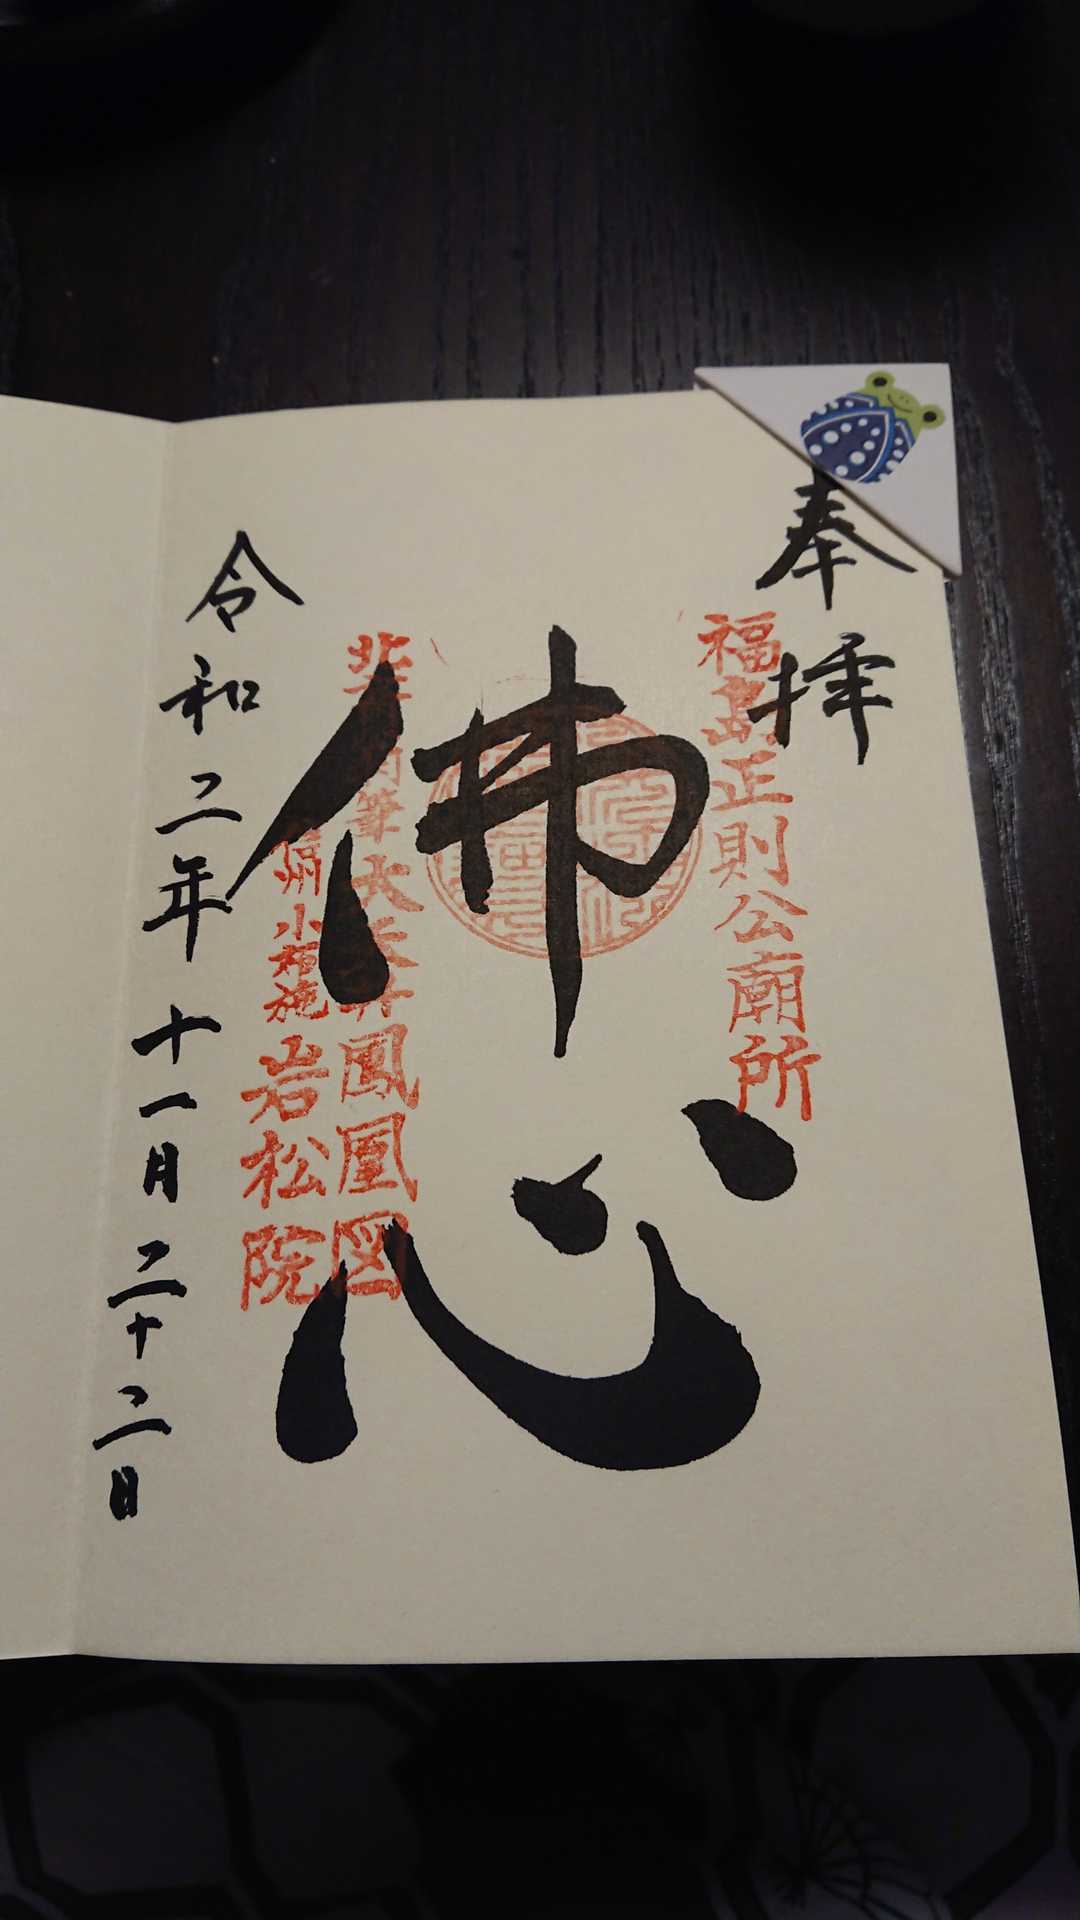 奉拝
福島正則公廟所
佛心
北斎筆大天井鳳凰図
信州小布施岩松院
令和二年十一月二十二日